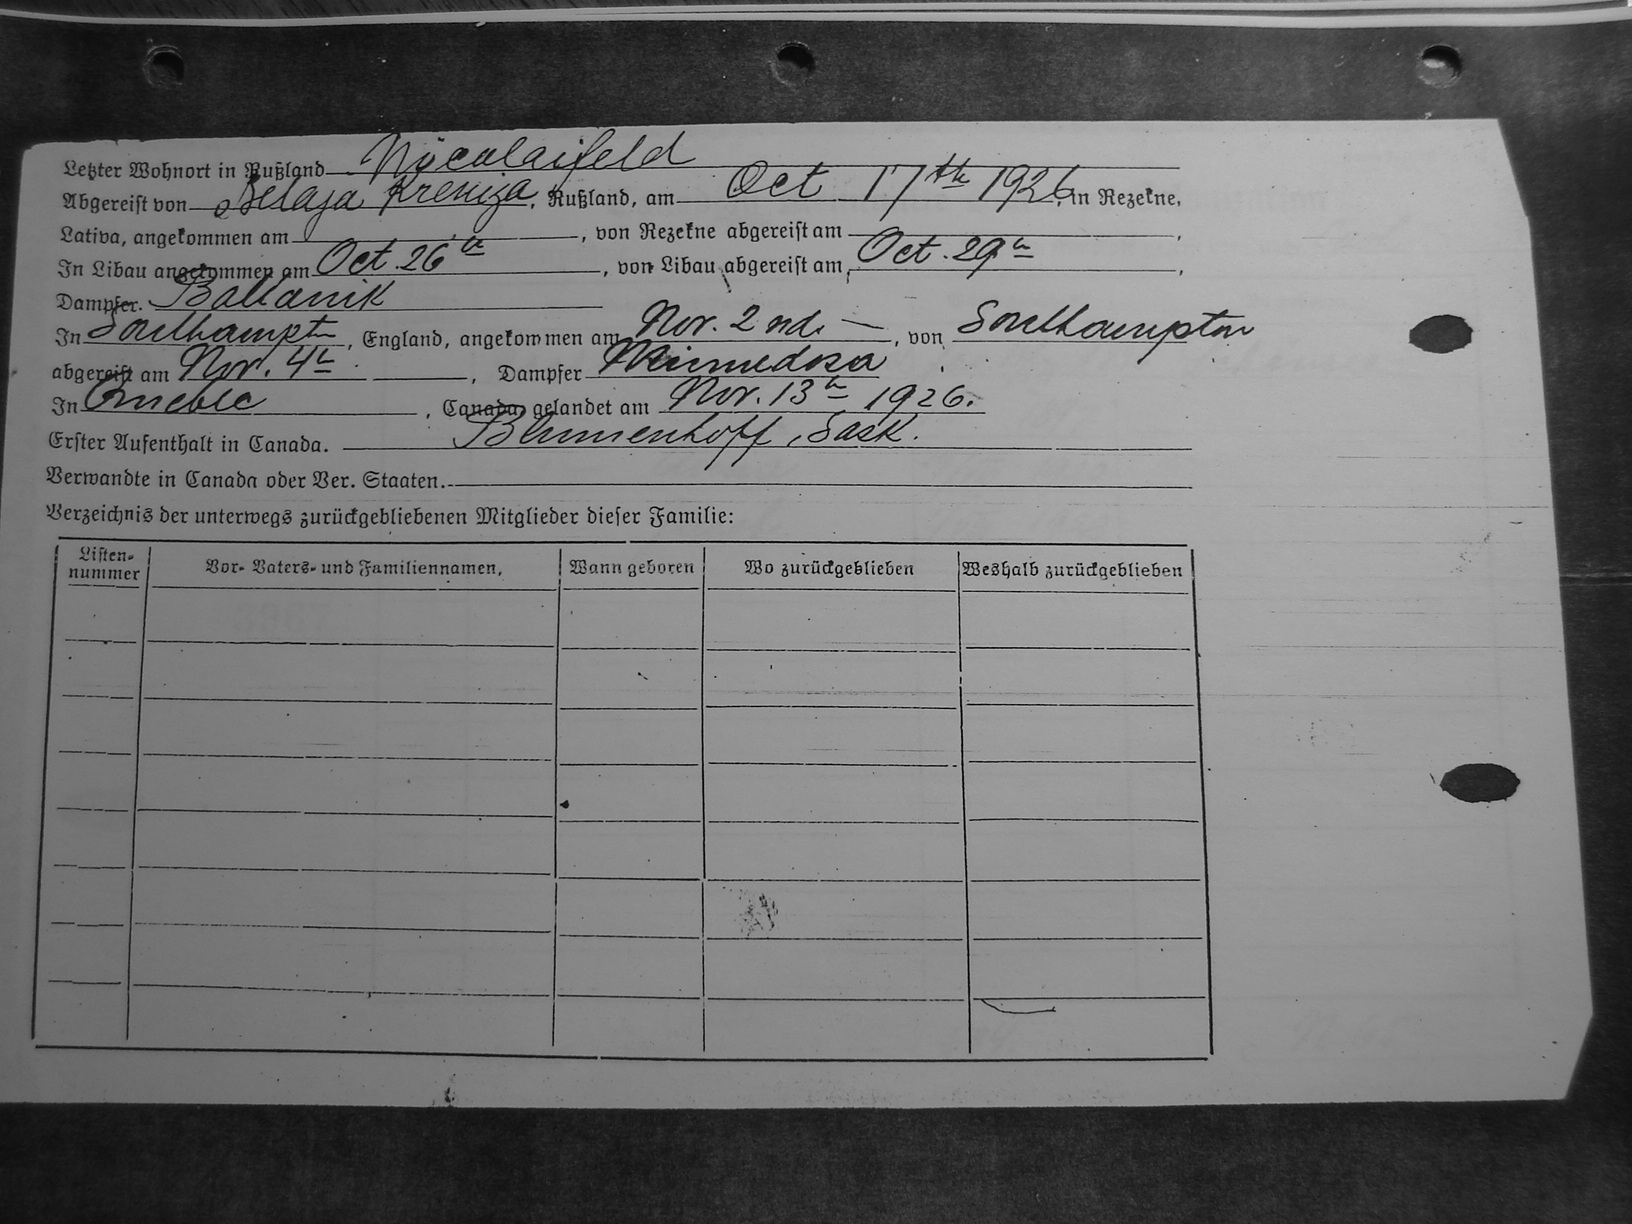 Letzter Wohnort in Rußland Nicolaifeld
Abgereist von Belaja Kreniza, Rußland, am Oct 17th 1926, in Rezekne,
Lativa, angekommen am , von Rezekne abgereist am ,
In Libau angekommen am Oct. 26th , von Libau abgereist am, Oct. 29th ,
Dampfer. Baltanik
In Southampton , England, angekommen am Nov. 2nd. — , von Southampton
abgereist am Nov. 4th , Dampfer Minnedosa
In Quebec , Canada, gelandet am Nov. 13th 1926.
Erster Aufenthalt in Canada. Blumenhoff, Sask.
Verwandte in Canada oder Ver. Staaten.
Verzeichnis der unterwegs zurückgebliebenen Mitglieder dieser Familie:
Listen-
nummer
Vor- Vaters- und Familiennamen,
Wann geboren
Wo zurückgeblieben
Weshalb zurückgeblieben